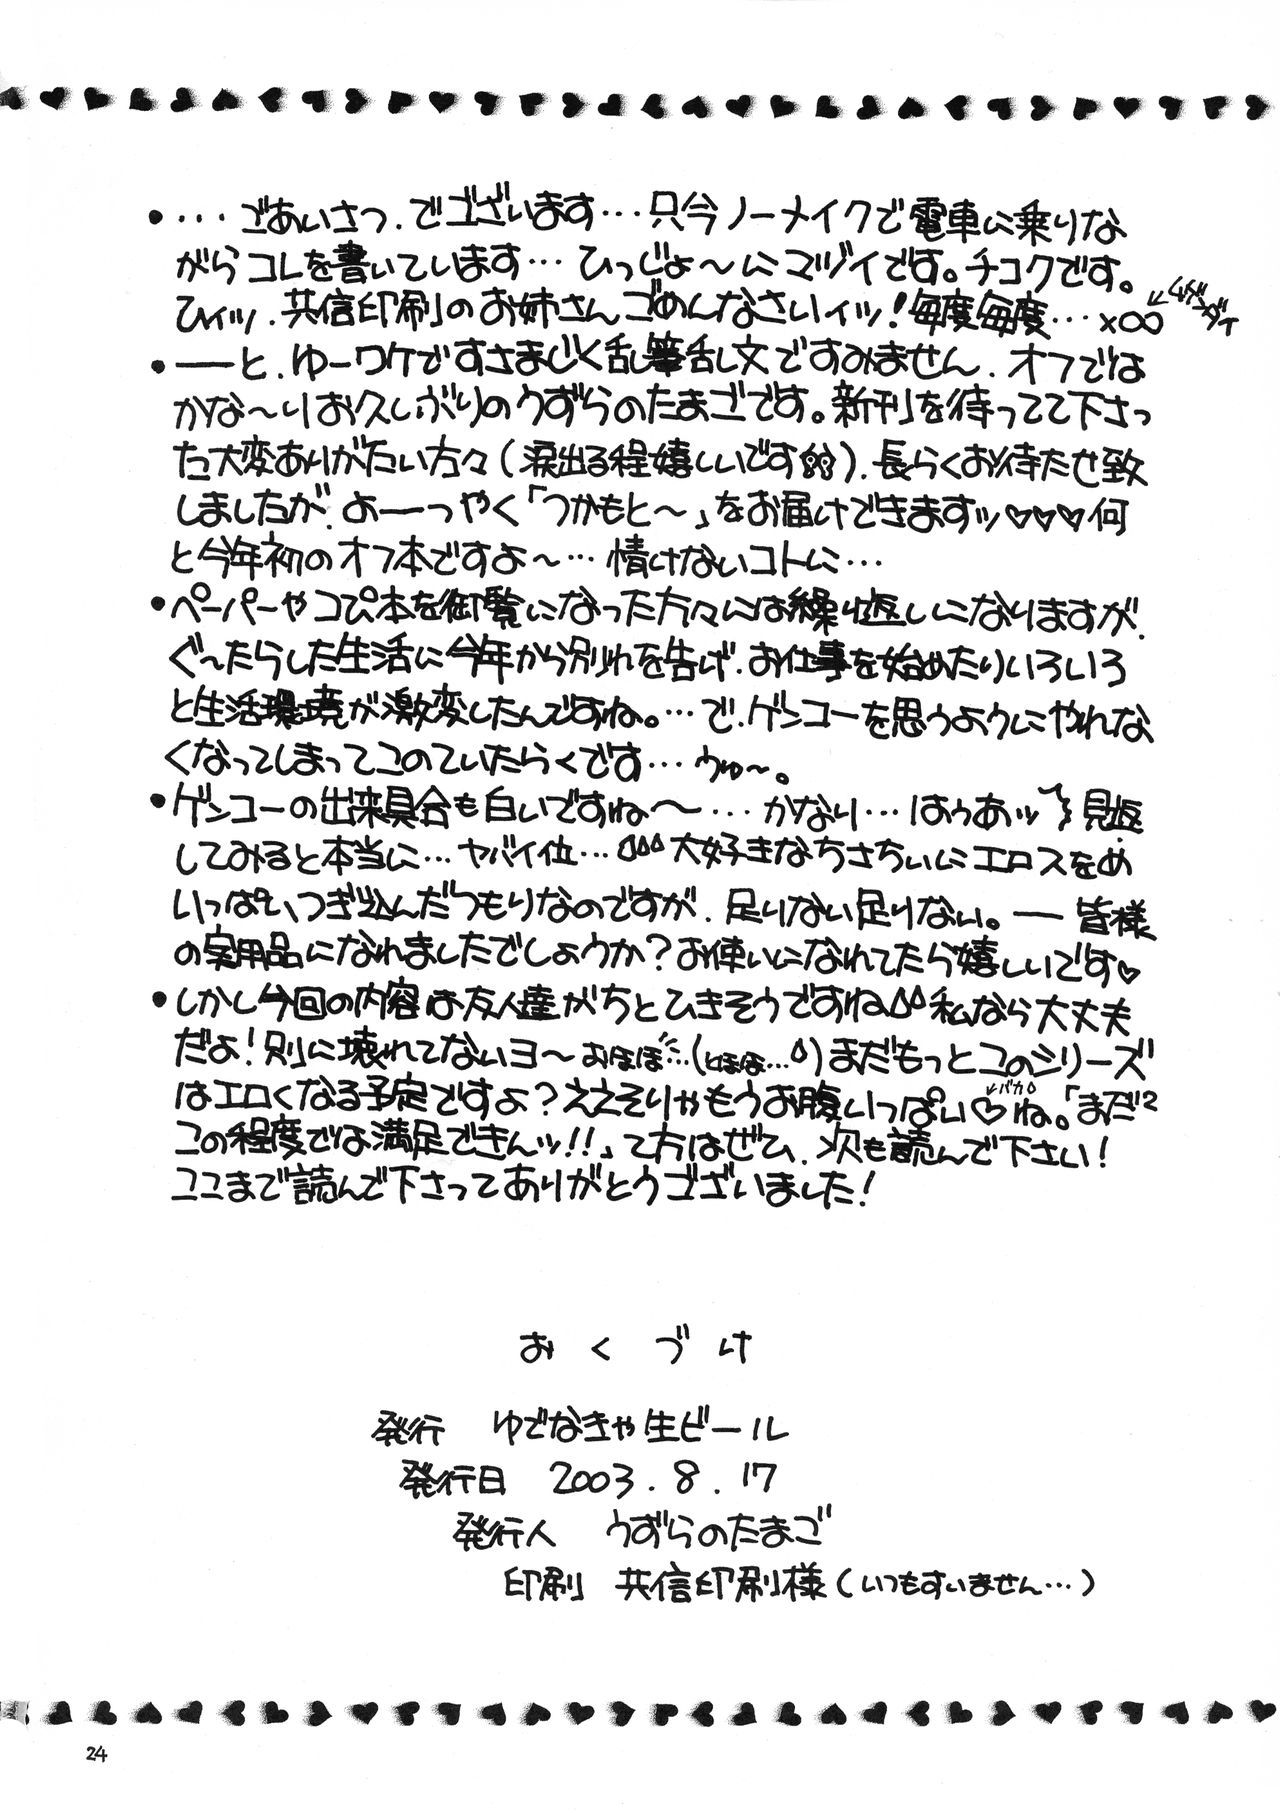 ・・・・ごあいさつ、でゴざいます…只今ノーメイクで電車に乗りな
がらコレを書いています…ひっじょ～にマヅイです。チコクです。
ひィッ、共信印刷のお姉さんごめんなさいィッ！毎度毎度…×∞
←ムゲンダイ
・──と、ゆーワケですさまじく乱筆乱文ですみません、オフでは
かな～りお久しぶりのうずらのたまごです。新刊を待ってて下さっ
た大変ありがたい方々（涙出る程嬉しいです）、長らくお待たせ致
しましたが、よーーつやく「つかもと～」をお届けできますッ♡♡♡何
と今年初のオフ本ですよ～…情けないコトに…
・ペーパーやコぴ本を御覧になった方々には繰り返しになりますが、
ぐ～たらした生活に今年から別れを告げ、お仕事を始めたりいろいろ
と生活環境が激変したんですね。…で、ゲンコーを思うようにやれな
くなってしまってこのていたらくです…うゅ～。
・ゲンコーの出来具合も白いですね～…かなり…はぅあッ 見返
してみると本当に…ヤバイ位…大好きなちさちぃにエロスをめ
いっぱいつぎ込んだつもりなのですが、足りない足りない。──皆様
の実用品になれましたでしょうか？お使いになれてたら嬉しいです♡
・しかし今回の内容は友人達がちとひきそうですね 私なら大丈夫
だよ！別に壊れてないヨ～おほほ…（とほほ…）まだもっとこのシリーズ
はエロくなる予定ですよ？ええそりゃもうお腹いっぱい♡ね。「まだ²
←バカ
この程度では満足できんッ！！」て方はぜひ、次も読んで下さい！
ココまで読んで下さってありがとうゴざいました！
おくづけ
発行 ゆでなきゃ生ビール
発行日 2003.8.17
発行人 うずらのたまご
印刷 共信印刷様（いつもすいません…）
24